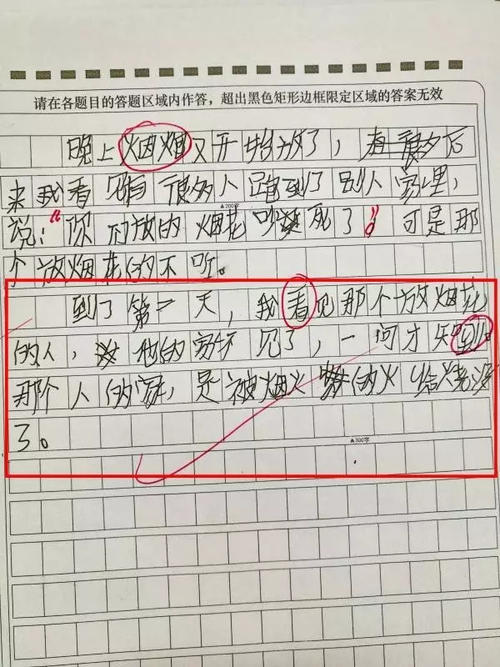 请在各题目的答题区域内作答，超出黑色矩形边框限定区域的答案无效
晚上烟烟又开始放了，有很多后
来我看见有很多人跑到了别人家里，
说：“你们放的烟花吵死了”可是那
▲200字
个放烟花的不听。
到了第一天，我看见那个放烟花
的人，他的家不见了，一问才知
那个人的家，是被烟火的火给烧没
了。
▲300字